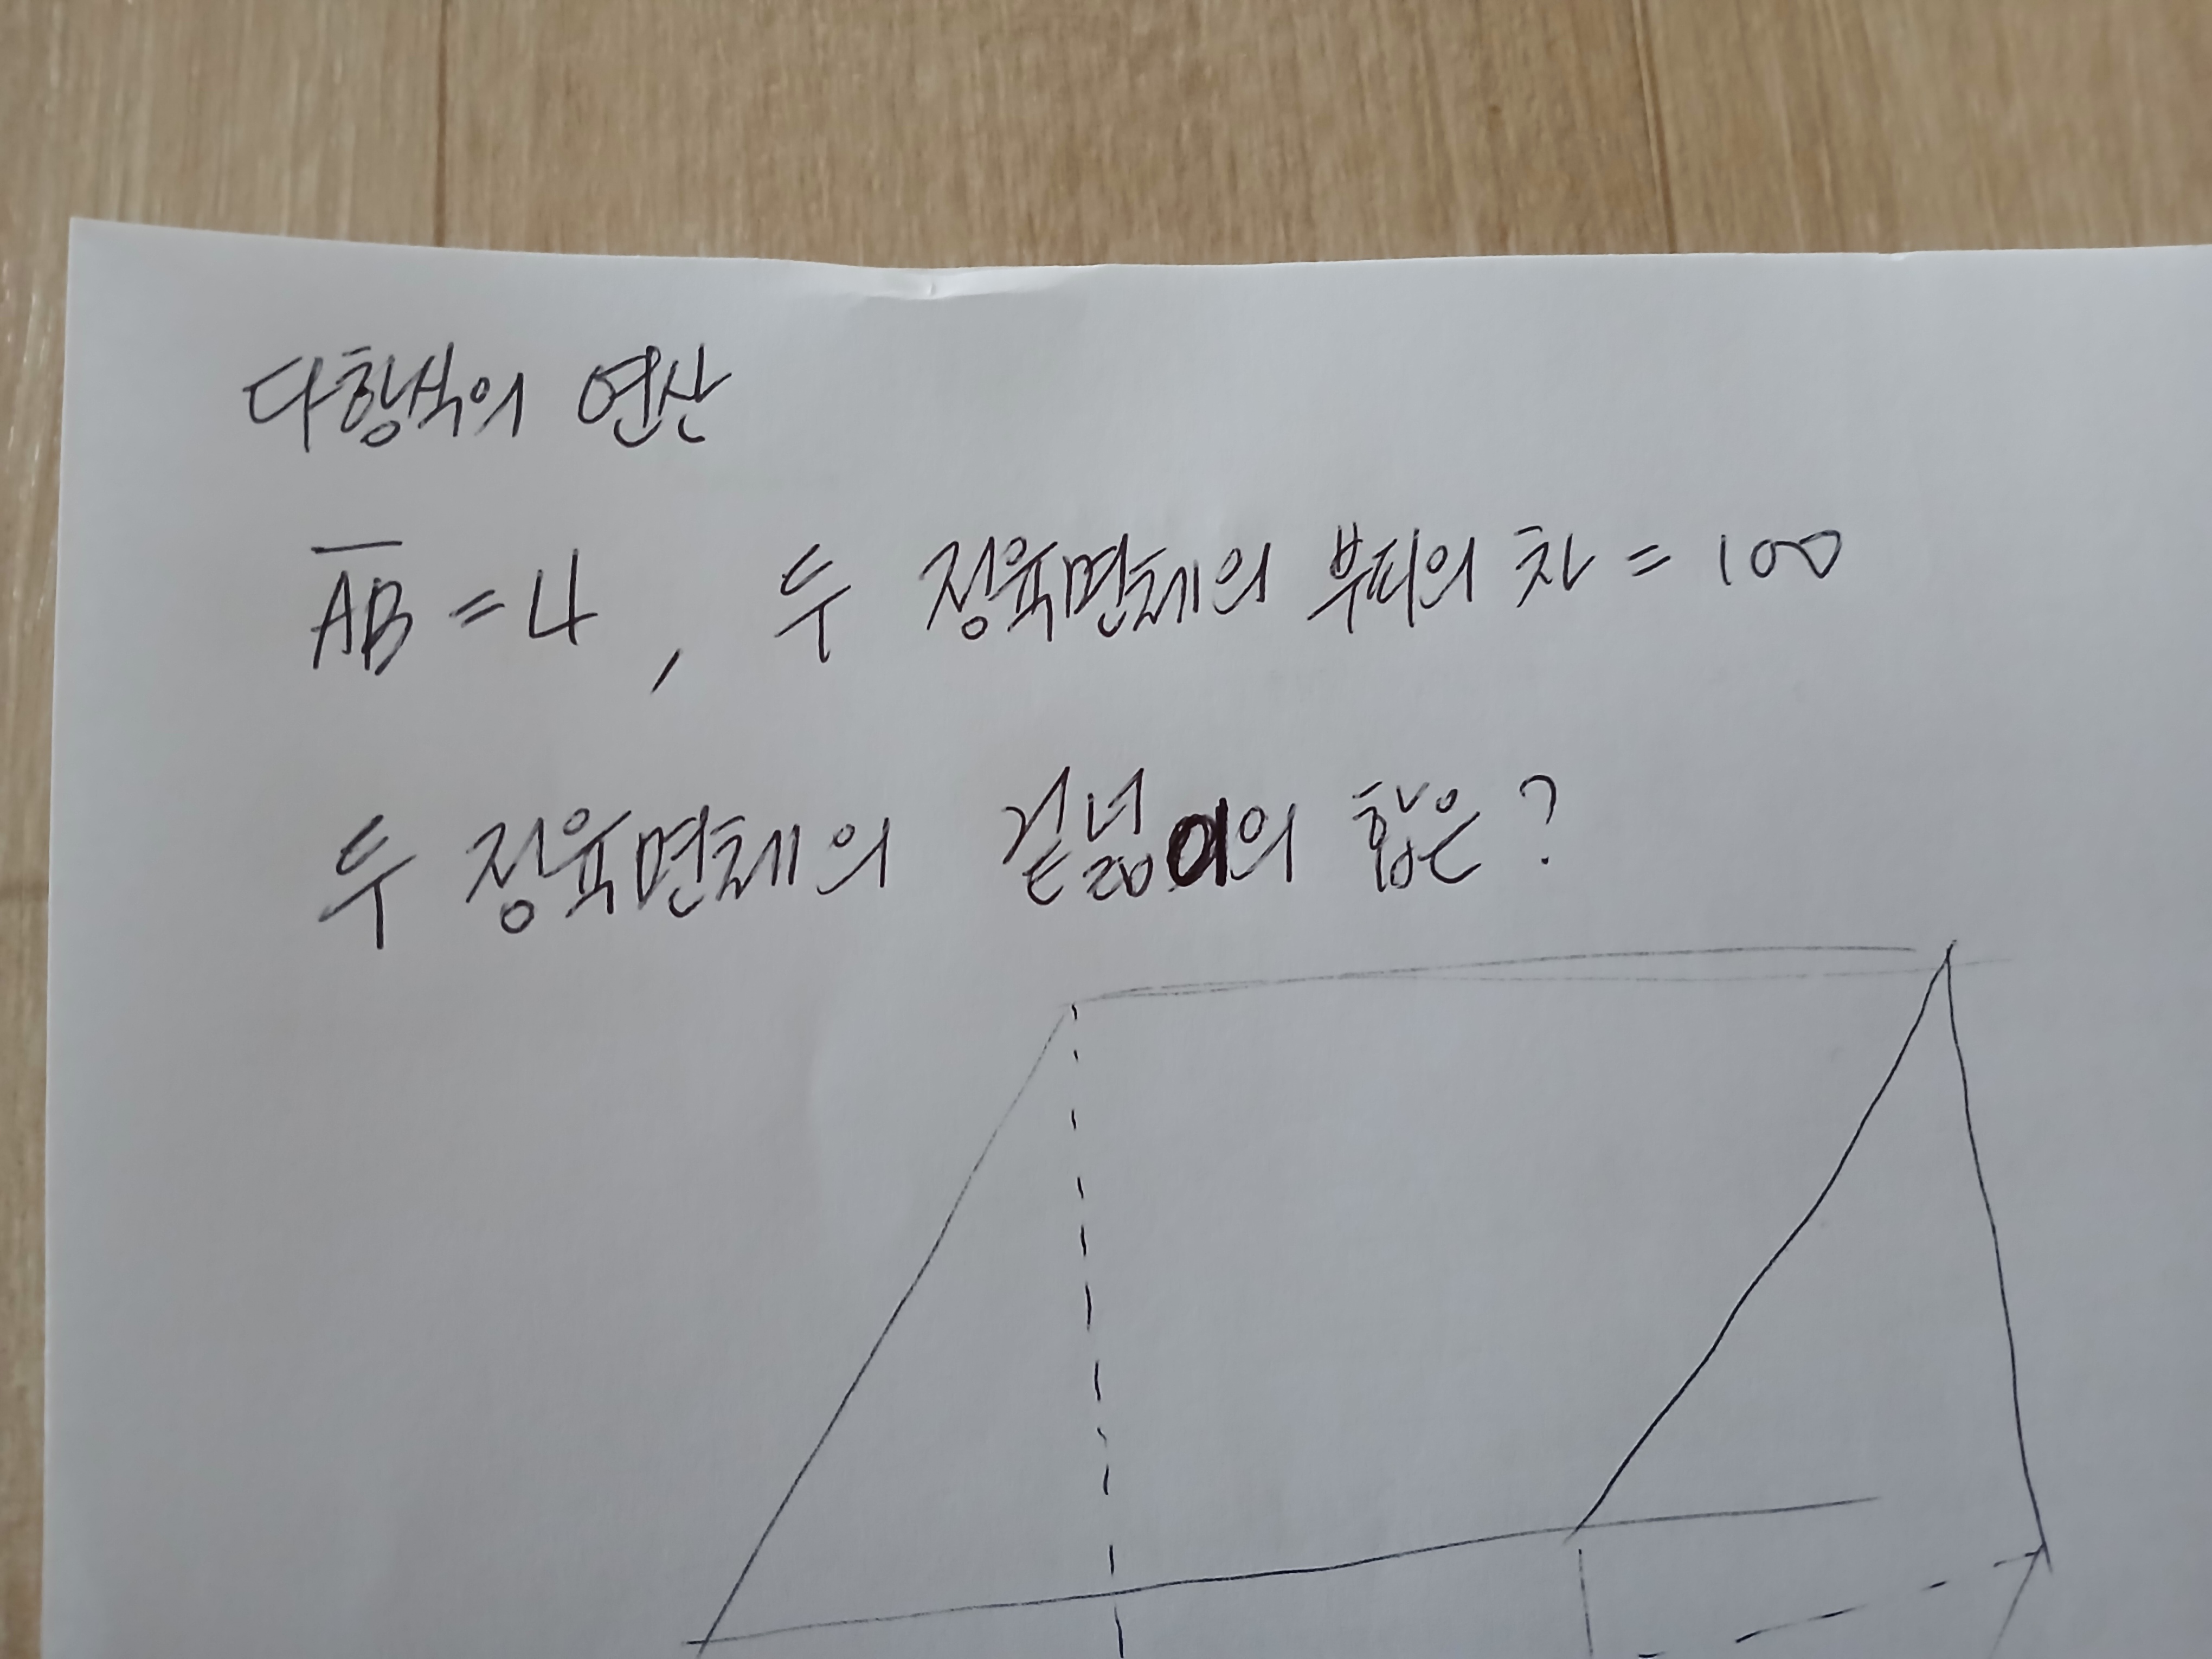 다항식의 연산
AB = 4, 두 정육면체의 부피의 차 = 100
두 정육면체의 겉넓이의 합은?